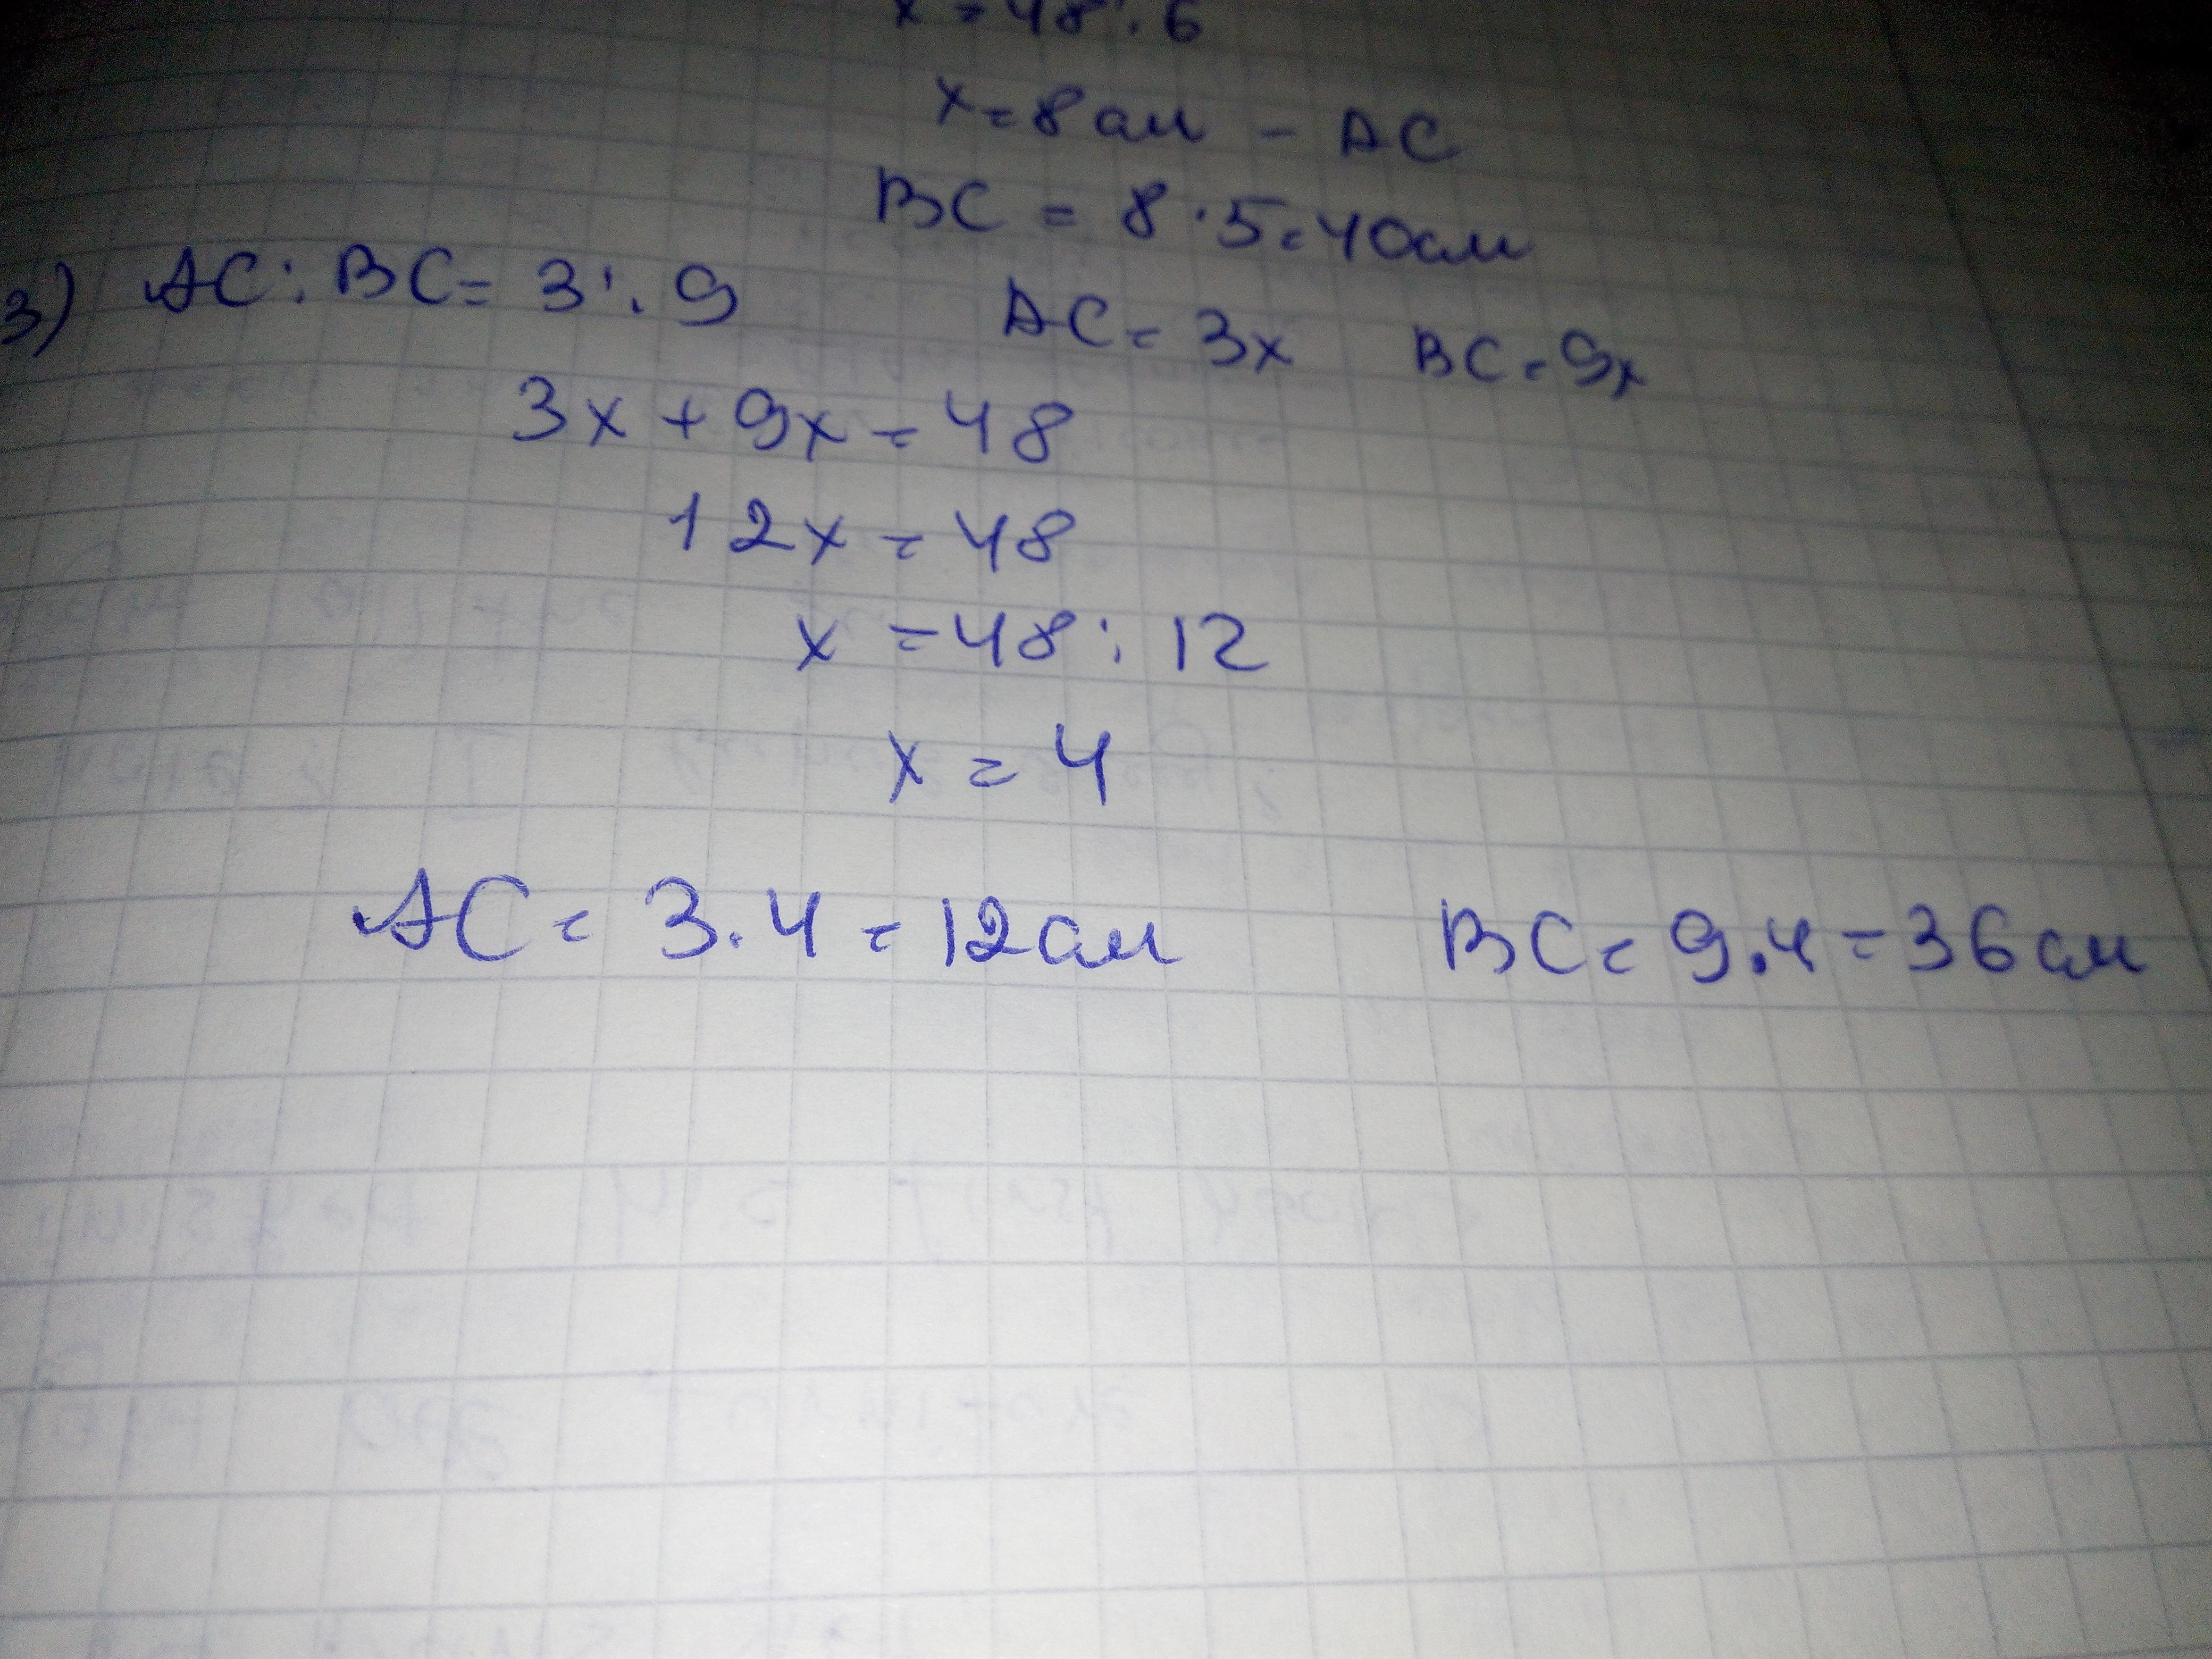 x = 48 : 6
x = 8 см - AC
BC = 8 · 5 = 40 см
3) AC : BC = 3 : 9 AC = 3x BC = 9x
3x + 9x = 48
12x = 48
x = 48 : 12
x = 4
AC = 3 · 4 = 12 см BC = 9 · 4 = 36 см